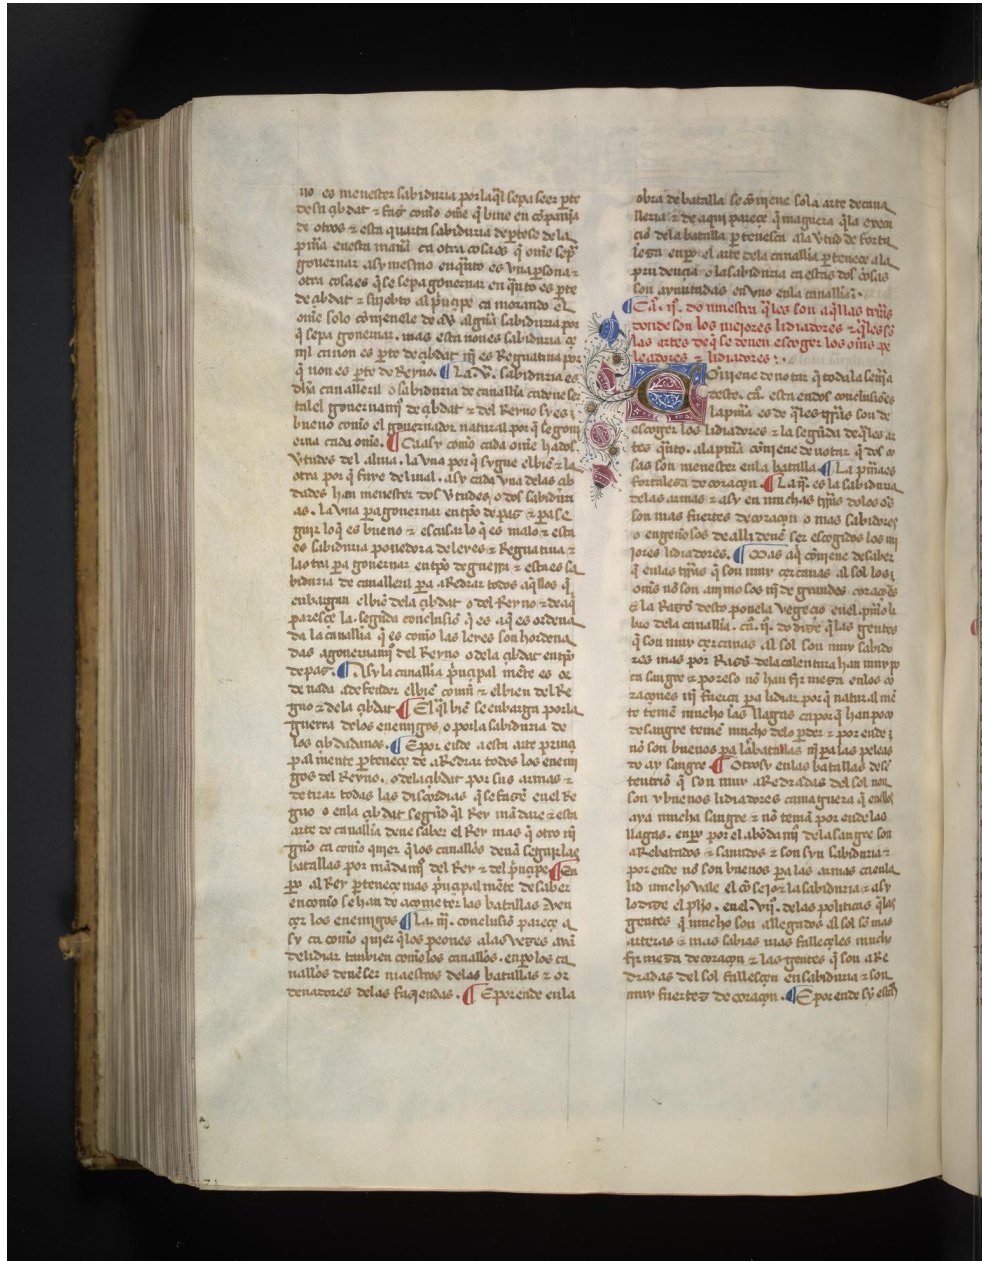 no es menester sabiduria por la q̃l sepa seer p̱te
de su çibdat ⁊ fas como om̃e q̃ biue en cõpañja
de otros ⁊ esta quarta sabiduria departese dela
p̃mã en esta mañã ca otra cosa es q̃ om̃e sep̃
gouernar asy mesmo en q̃nto es vna p̱sona ⁊
otra cosa es q̃ se sepa gouernar en q̃nto es p̱te
de çibdat ⁊ subiebto al p̃nçipe ca morando el
om̃e solo cõujenele de av̉ algũa sabiduria por
q̃ sepa gouernar. mas esta no es sabiduria çe
uil ca non es p̱te de çibdat nj̃ es Regnatiua por
q̃ non es p̱te de Reyno. ¶ La .v. sabiduria es
dhã caualleril o sabiduria de cauallia ca deue ser
tal el gouernamj̃ de çibdat ⁊ del Reyno sy es
bueno como el gouernador natural por q̃ se gouj
erna cada om̃e. ¶ Ca asy como cada om̃e ha dos
v̉tudes del alma. la vna por q̃ sygue el biẽ ⁊ la
otra por q̃ fuye del mal. asy cada vna delas çib
dades han menester dos v̉tudes, o dos sabiduri
as. la vna p̱a gouernar en tp̃o de pas ⁊ p̱a se
guir lo q̃ es bueno ⁊ escusar lo q̃ es malo ⁊ esta
es sabiduria ponedora de leyes ⁊ Regnatiua ⁊
la otra p̱a gouernar en tp̃o de guerra ⁊ esta es sa
biduria de caualleria p̱a aRedrar todos aq̃llos q̃
enbargan el biẽ dela çibdat o del Reyno ⁊ de aq̃
paresçe la .segũda conclusiõ q̃ es aq̃ es ordena
da la cauallia q̃ es como las leyes son hordena
das a gouernamj̃ del Reyno o dela çibdat en tp̃o
de pas. ¶ Asy la cauallia p̃nçipal mẽte es or
denada a defender el biẽ comũ ⁊ el bien del Re
gno ⁊ dela çibdat ¶ El q̃l biẽ se enbarga por la
guerra delos enemigos, o por la sabiduria de
los çibdadanos. ¶ E por ende a esta arte prinçi
pal mente p̱tenesçe de aRedrar todos los enemj
gos del Reyno, o dela çibdat por sus armas ⁊
de tirar todas las discordias q̃ se fazẽ en el Re
gno o en la çibdat segũd q̃l Rey mãdare ⁊ esta
arte de cauallia deue saber el Rey mas q̃ otro nj̃
guno ca como quier q̃ los cauallõs deuã seguir las
batallas por mãdamj̃ del Rey ⁊ del p̃nçipe ¶ En
p̱o al Rey p̱tenesçe mas p̃nçipal mẽte de saber
en como se han de acometer las batallas ⁊ ven
çer los enemigos ¶ La .iij. conclusiõ pareçe a
sy ca como quier q̃ los peones alas vezes ayã
de lidiar tanbien como los cauallõs. enp̱o los ca
uallõs deuẽ ser maestros delas batallas ⁊ or
denadores delas fasiendas. ¶ E por ende en la
obra de batalla se cõtiene sola arte de caua
lleria ⁊ de aqui pareçe q̃ maguera q̃ la execu
ciõ dela batalla p̱tenesca ala v̉tud de forta
lesa enp̱o el arte dela cauallia p̱tenesçe ala
prudençia o la sabiduria ca estas dos cosas
son ayuntadas en vno en la cauallia.
¶ Ca .ij. do muestra q̃les son aq̃llas trr̃as
donde son los mejores lidiadores ⁊ q̃les s̃
las artes de q̃ se deuen escoger los om̃s pe
leadores ⁊ lidiadores :.
Cõujene de notar q̃ toda la sen̉a
deste .ca. esta en dos conclusiões
la p̃mã es de q̃les trr̃as son de
escoger los lidiadores ⁊ la segũda de q̃les ar
tes q̃nto. ala p̃mã cõujene de notar q̃ dos co
sas son menester en la batalla ¶ La p̃mã es
fortalesa de coraçon. ¶ La .ij. es la sabiduria
delas armas ⁊ asy en muchas trr̃as do los om̃s
son mas fuertes de coraçon o mas sabidores
o engeñosos de alli deuẽ ser escogidos los me
jores lidiadores. ¶ Mas aq̃ cõujene de saber
q̃ en las trr̃as q̃ son muy çercanas al sol los
om̃s nõ son animosos nj̃ de grandes coraçõs
⁊ la Razõ desto pone la vegeçio en el .p̃mo li
bro dela cauallia. ca. ij. do dize q̃ las gentes
q̃ son muy çercanas al sol son muy sabido
res mas por Razõ dela calentura han muy po
ca sangre ⁊ por eso nõ han firmeza en los co
raçones nj̃ fuerça pa lidiar por q̃ natural mẽ
te temẽ mucho las llagas ca por q̃ han poca
de sangre temẽ mucho dela p̱der ⁊ por ende
nõ son buenos pa la batallas nj̃ pa las peleas
do ay sangre ¶ Otrosy en las batallas de sẽ
tentriõ q̃ son muy aRedradas del sol non
son y buenos lidiadores ca maguera q̃ en ellos
aya mucha sangre ⁊ nõ teman por ende las
llagas. enp̱o por el abõdamj̃ dela sangre son
aRebatados ⁊ sañudos ⁊ son syn sabiduria ⁊
por ende nõ son buenos pa las armas ca en la
lid mucho vale el cõsejo ⁊ la sabiduria ⁊ asy
lo dize el pħo. en el .vij. delas politicas q̃ las
gentes q̃ mucho son allegados al sol sõ mas
arteras ⁊ mas sabias mas falleçeles mucho
firmeza de coraçon ⁊ las gentes q̃ son aRe
dradas del sol fallesçen en sabiduria ⁊ son
muy fuertes de coraçon. ¶ E por ende sy estas